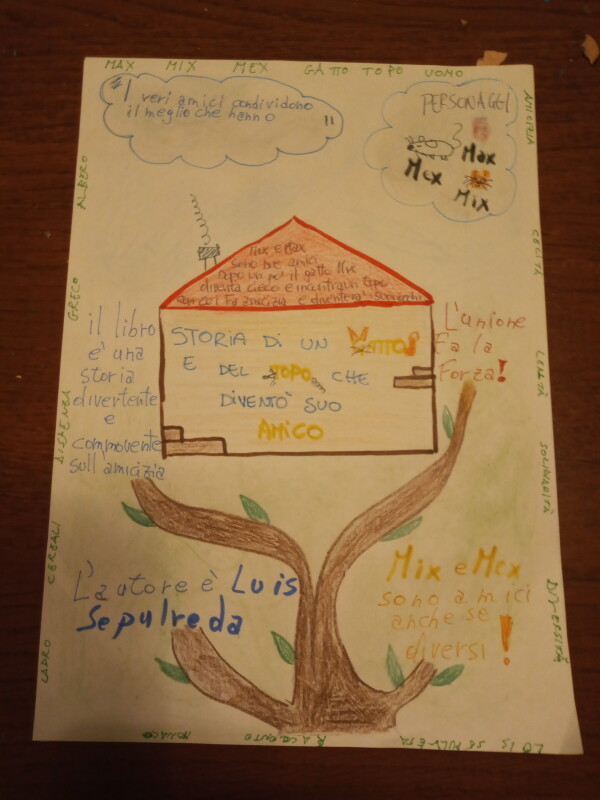 MAX MIX MEX GATTO TOPO UOMO
"I veri amici condividono
il meglio che hanno"
PERSONAGGI
Max
Mex
Mix
AMICIZIA
CECITÀ
LEALTÀ
SOLIDARIETÀ
DIVERSITÀ
ALBERO
GRECO
DISPENSA
CEREALI
LADRO
Mix e Max
sono due amici
Dopo un po' il gatto Mix
diventa cieco e incontra un topo
con cui fa amicizia e diventerà
STORIA DI UN GATTO
E DEL TOPO CHE
DIVENTÒ SUO
AMICO
il libro
e' una
storia
divertente
e
commovente
sull'amicizia
L'unione
Fa la
Forza!
L'autore è Luis
Sepulveda
Mix e Mex
sono amici
anche se
diversi!
MONACO RACCONTO LUIS SEPULVEDA